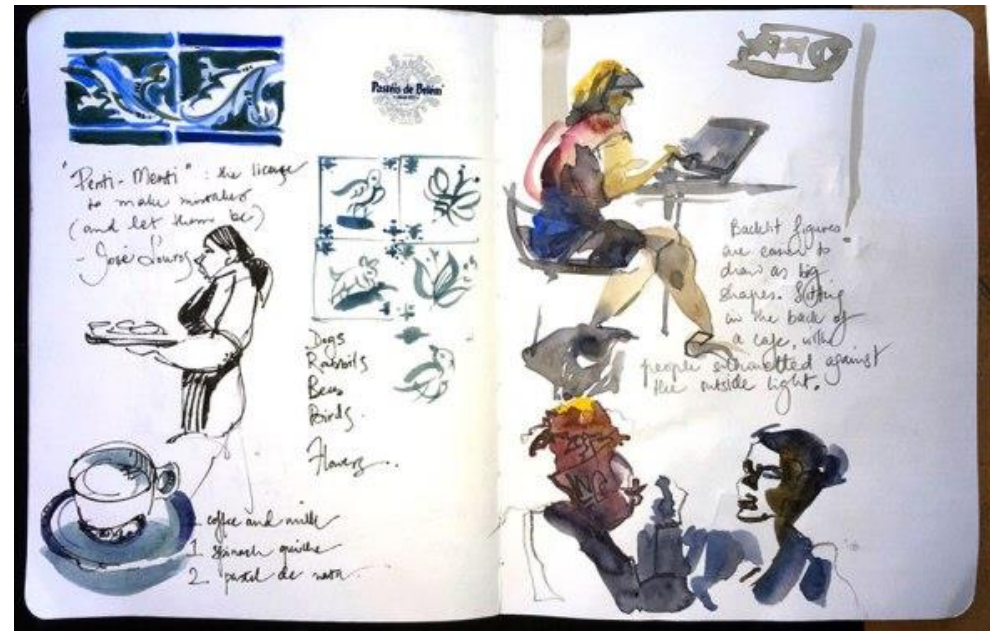 Pastéis de Belém
"Penti-Menti" : the license
to make mistakes
(and let them be)
- José Louro
Dogs
Rabbits
Bees
Birds.
Flowers..
1 coffee and milk
1 spinach quiche
2 pastel de nata.
Backlit figures
are easier to
draw as big
shapes. Sitting
in the back of
a cafe, with
people silhouetted against
the outside light.